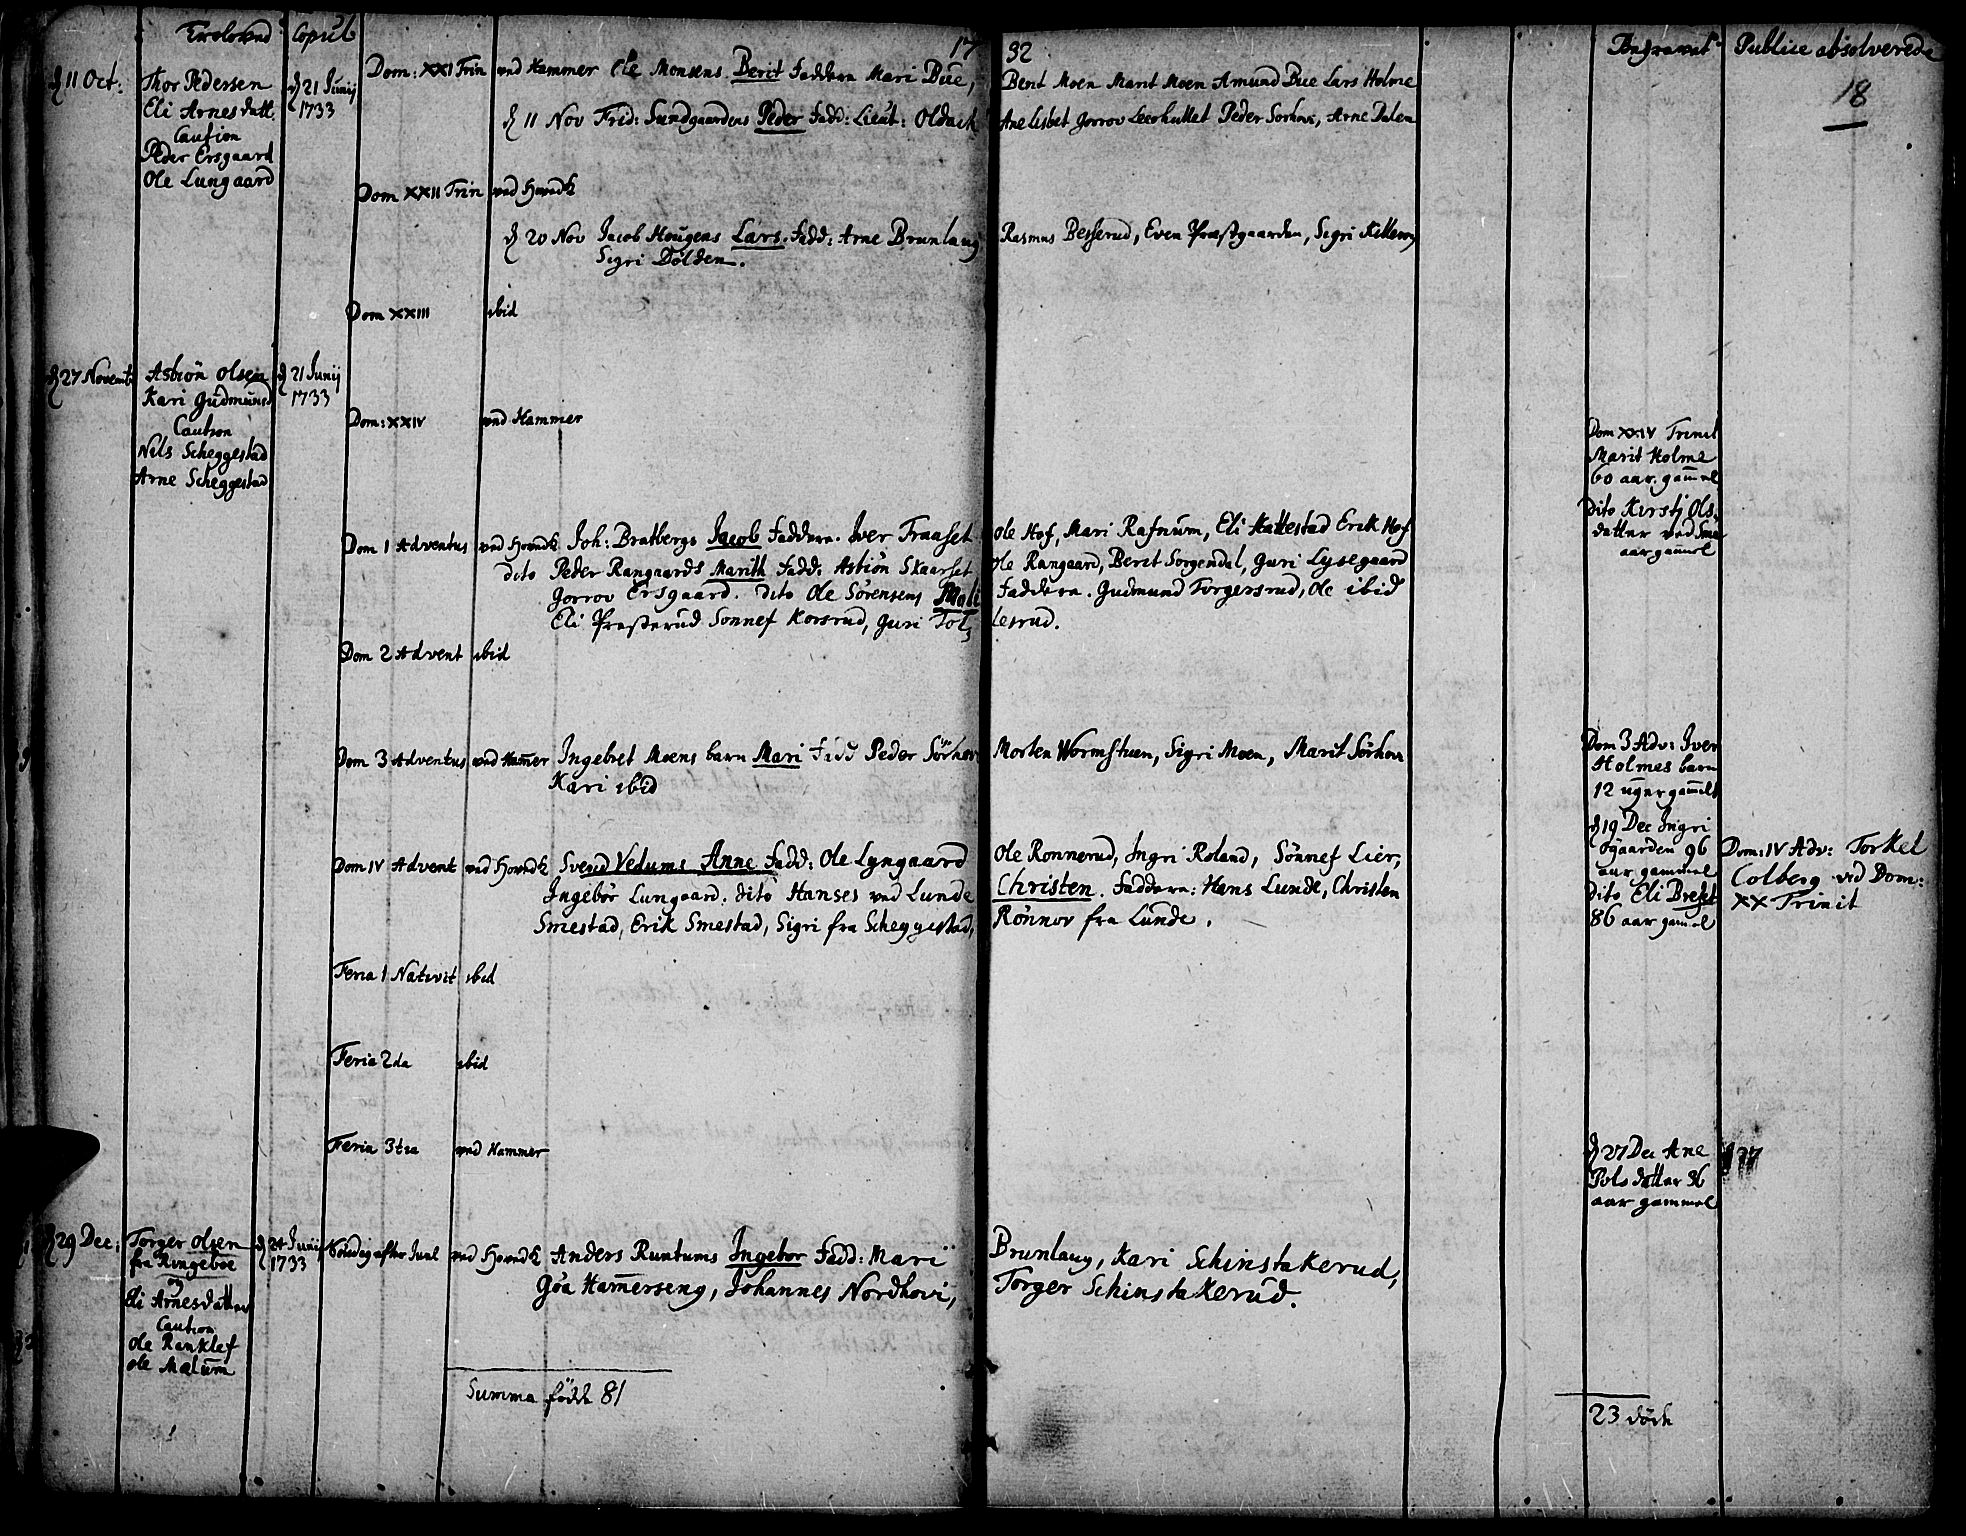 Trolovend Copul 17 32 Begravet Publice absolverede
18
d 11 Oct:
Thor Pedersen
Eli Arnesdatt
Caution
Peder Ersgaard
Ole Lungaard
d 21 Junij
1733
Dom: XXI Trin ved Hammer Ole Monsens Berit Faddere Mari Bue, Berit Moen Marit Moen Amund Bue Lars Holme
d 11 Nov Frid: Sundgaardens Peder Fadd: Lieut: Oldach Ane Lisbet Gorrov Peder Sorhovi, Arne Dalen
Dom XXII Trin ved Hovedk
d 20 Nov Jacob Hougens Lars. Fadd: Arne Brunlaug Rasmus Besserud, Even Præstgaarden, Sigri
Sigri Dolden.
Dom XXIII ibid
d 27 Novemb
Astiön Olsen
Kari Gudmunsd
Caution
Nils Scheggestad
Arne Scheggestad
d 21 Junij
1733
Dom: XXIV ved Hammer
Dom XXIV Trinit
Marit Holme
60 aar gammel
dito Kirstj Ols
datter ved Sme
aar gammel
Dom 1 Adventus ved Hovedk Joh: Bratbergs Jacob Faddere. Iver Fraaset Ole Hof, Mari Rafnum, Eli Hattestad Erik Hof
dito Peder Rangaards Marith Fadd: Astiön Skaarset Ole Rangaard, Berit Sorgendal, Guri Lysegaard
Gorrov Ersgaard. dito Ole Sörensens Mali Faddere. Gudmund Torgersrud, Ole ibid
Eli Præsterud Sonnef Korsrud, Guri Tol lesrud.
Dom 2 Advent ibid
Dom 3 Adventus ved Hammer Ingebret Moens barn Mari Fadd Peder Sörhov Morten Wormstuen, Sigri Moen, Marit Sörhov
Kari ibid
Dom 3 Adv: Iver
Holmes barn
12 uger gammelt
d 19 Dec Ingri
Ogaarden 96
aar gammel
dito Eli Brekst
86 aar gammel
Dom IV Advent ved Hovedk Svend Vedums Anne Fadd: Ole Lyngaard Ole Ronnerud, Ingri Roland, Sönnef Lier,
Ingebör Lungaard. dito Hanses ved Lunde Christen. Faddere: Hans Lunde, Christen
Smestad, Erik Smestad, Sigri fra Scheggestad, Rönnov fra Lunde.
Dom: IV Adv: Torkel
Colberg vid Dom:
XX Trinit
Feria 1 Nativit ibid
Feria 2da ibid
Feria 3tia ved Hammer
d 27 Dec Ane
Polsdatter 86
aar gammel
d 29 Dec:
Torger Olsen
fra Ringeboe
og
Eli Arnesdatter
Caution
Ole Ranklef
Ole Mælum
d 24 Junij
1733
Söndag efter Juul ved Hovedk Anders Runtums Ingebor Fadd: Mari Brunlaug, Kari Schinstakerud,
Göa Hammerseng, Johannes Nordhovi, Torger Schinstakerud.
Summa födde 81
23 döde